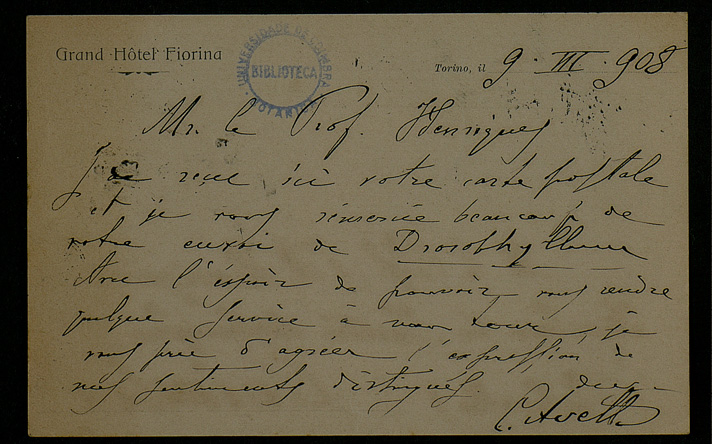 Grand Hôtel Fiorina
UNIVERSIDADE DE COIMBRA
BIBLIOTECA
BOTANICA
Torino, il 9 · III · 908
Mr. le Prof. Henriques
J'ai reçu ici votre carte postale
et je vous remercie beaucoup de
votre envoi de Drosophyllum
Avec l'espoir de pouvoir vous rendre
quelque service à mon tour, je
vous prie d'agréer l'expression de
mes sentiments distingués.
C. Avetta